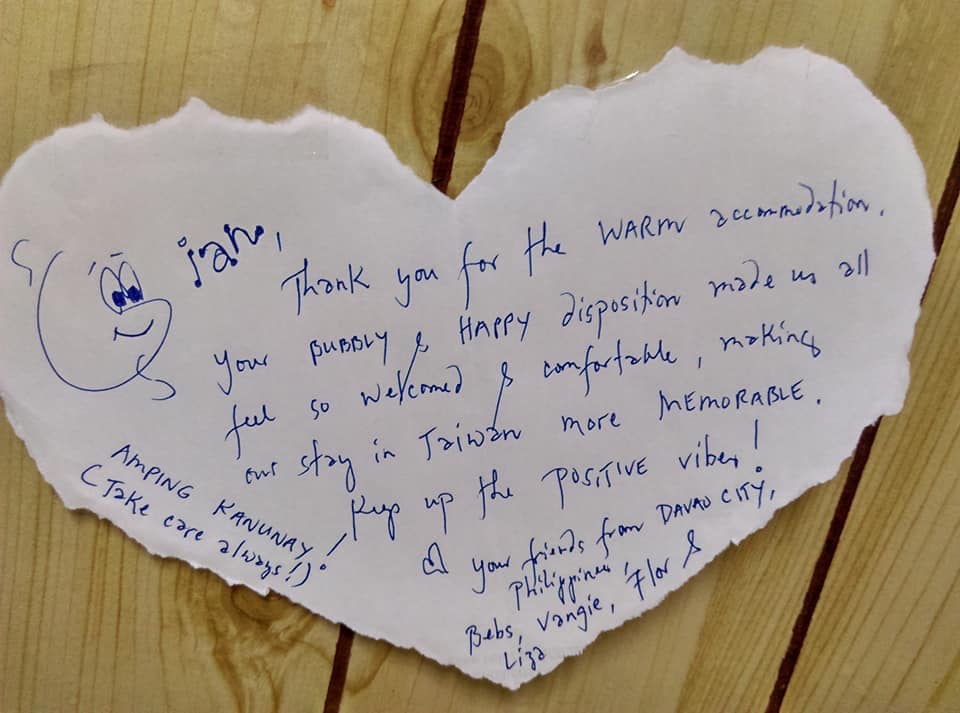 Jan,
Thank you for the WARM accommodation.
your BUBBLY & HAPPY disposition made us all
feel so welcomed & comfortable, making
our stay in Taiwan more MEMORABLE.
Keep up the POSITIVE vibes!
your friends from DAVAO CITY,
Philippines,
Bebs, Vangie, Flor &
Liza
AMPING KANUNAY!
(Take care always!)